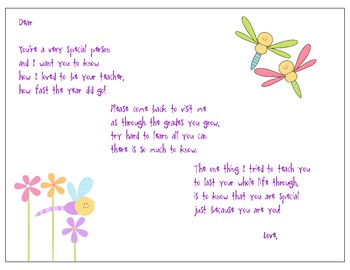 Dear
You're a very special person
and I want you to know
how I loved to be your teacher,
how fast the year did go!
Please come back to visit me
as through the grades you grow,
try hard to learn all you can
there is so much to know.
The one thing I tried to teach you
to last your whole life through,
is to know that you are special
just because you are you!
Love,